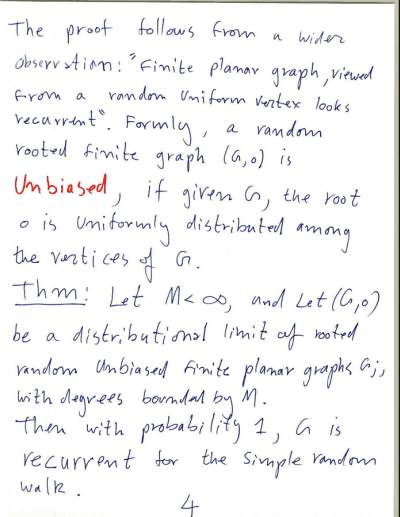 The proof follows from a wider
observation: "Finite planar graph, viewed
from a random uniform vertex looks
recurrent". Formly, a random
rooted finite graph (G,o) is
Unbiased, if given G, the root
o is uniformly distributed among
the vertices of G.
Thm: Let M<∞, and Let (G,o)
be a distributional limit of rooted
random Unbiased finite planar graphs Gj,
with degrees bounded by M.
Then with probability 1, G is
recurrent for the simple random
walk.
4